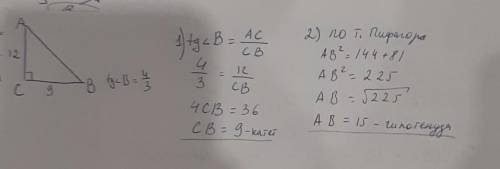 A
12
C
9
B
tg∠B = 4/3
1) tg∠B = AC/CB
4/3 = 12/CB
4CB = 36
CB = 9 - катет
2) по т. Пифагора
AB² = 144 + 81
AB² = 225
AB = √225
AB = 15 - гипотенуза